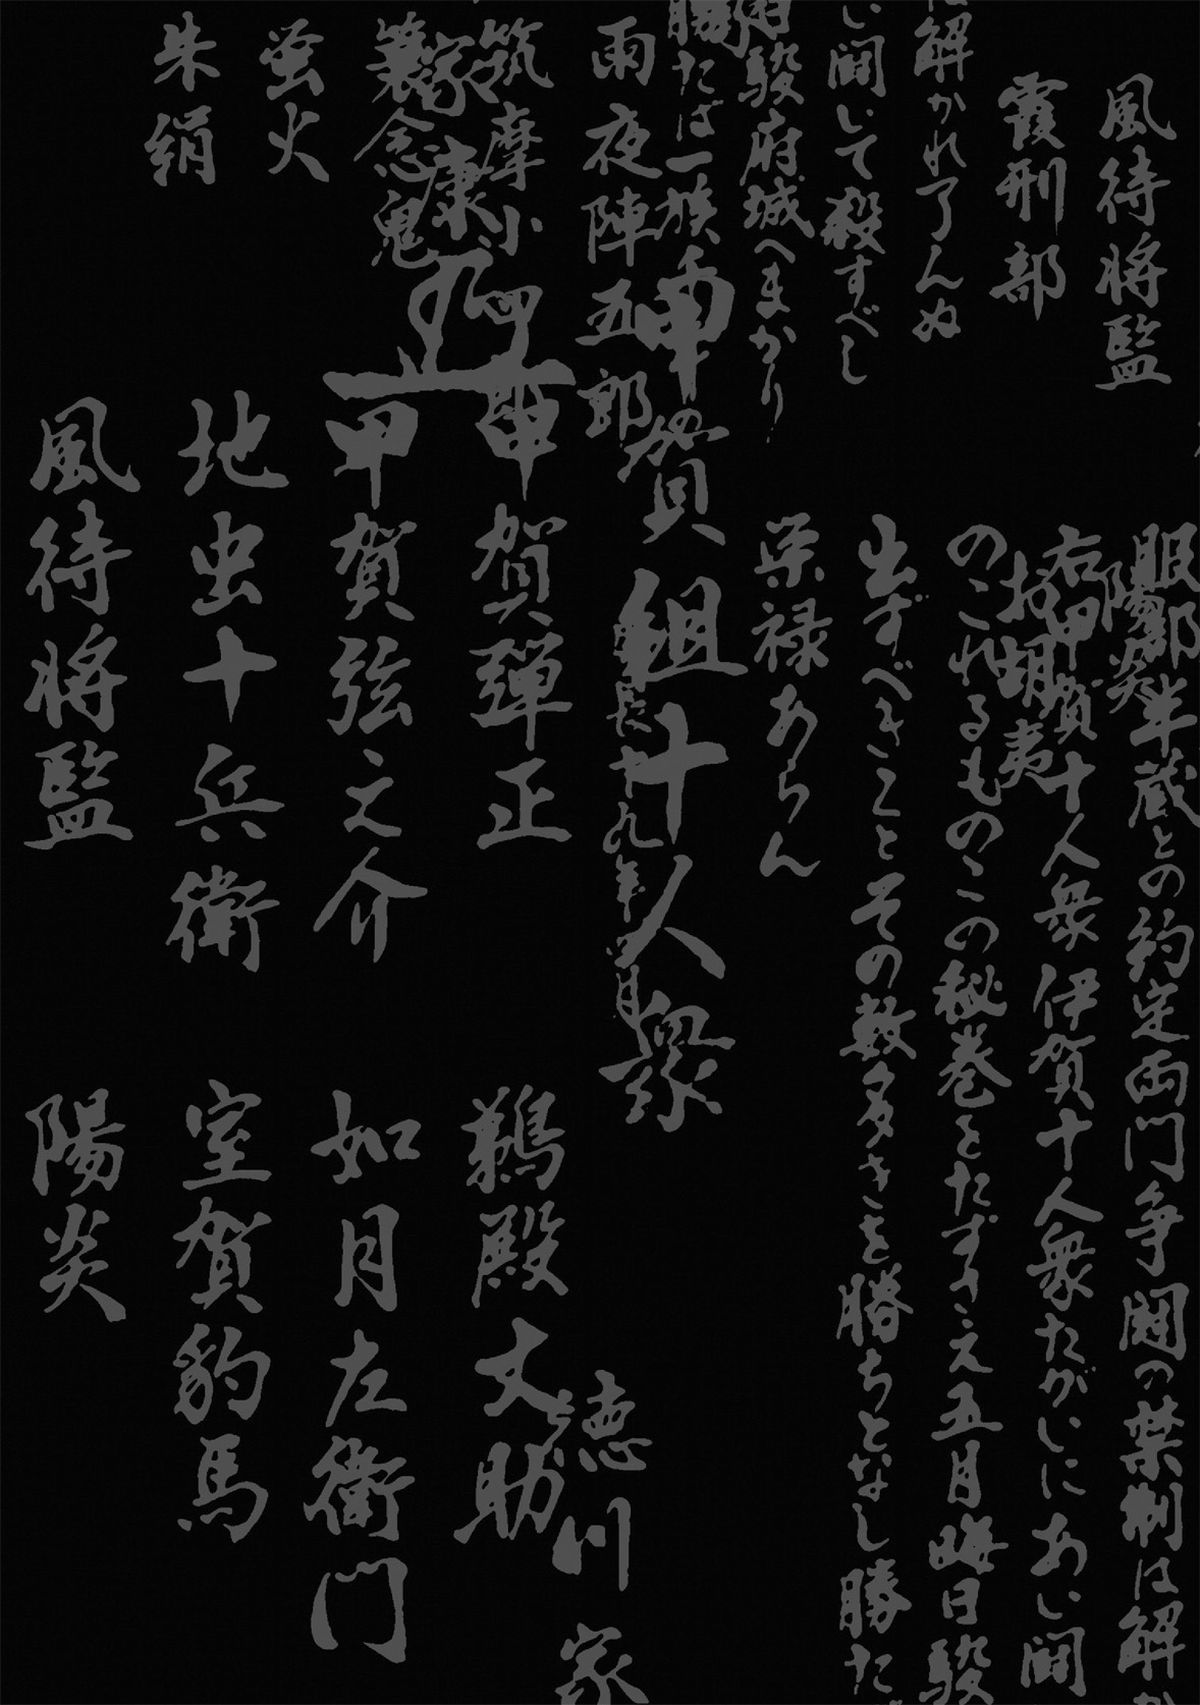 風待将監
霞刑部
に解かれ了んぬ
い闘いて殺すべし
駿府城へまかり
勝たば一族
雨夜陣五郎
筑摩小四郎
家康
蓑念鬼
蛍火
朱絹
服部半蔵との約定両門争闘の禁制は解か
陽炎
右甲賀十人衆伊賀十人衆たがいにあい闘
お胡夷
のこれるものこの秘巻をたずさえ五月晦日駿
出ずべきことその数多きを勝ちとなし勝たば
栄禄あらん
甲賀組十人衆
慶長十九年四月
徳川家
甲賀弾正
甲賀弦之介
地虫十兵衛
風待将監
鵜殿丈助
如月左衛門
室賀豹馬
陽炎